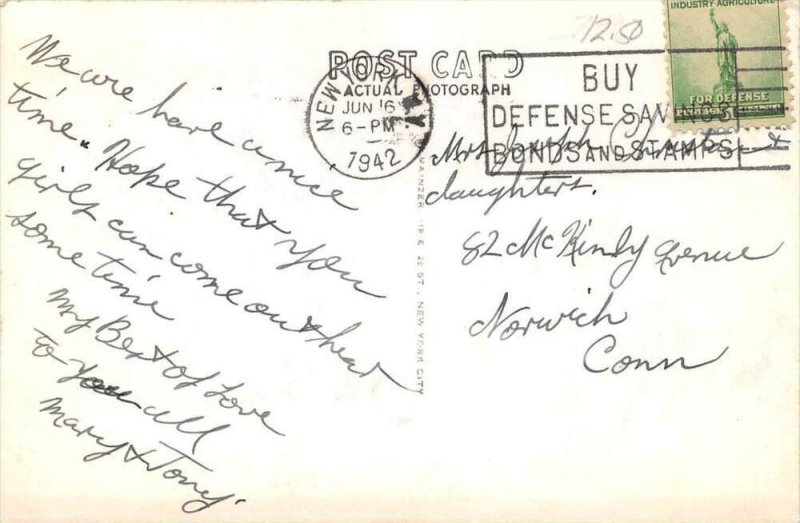 12.50
INDUSTRY-AGRICULTURE
FOR DEFENSE
POST CARD
ACTUAL PHOTOGRAPH
NEW YORK
JUN 16
6-PM
1942
BUY
DEFENSE SAVINGS
BONDS AND STAMPS
We are have a nice
time. Hope that you
girls can come out hear
some time
My Best of Love
to you all
Mary & Tony.
MAINZER, 118 E. 28 ST., NEW YORK CITY
Mrs Joseph &
daughters.
82 McKindy Avenue
Norwich
Conn